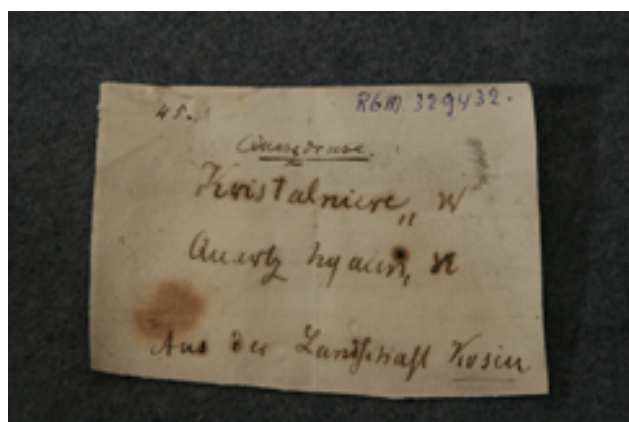 45. RGM. 329432.
Quarzdruse.
Kristalniere,, N
Quertz hyacin, N
Aus der Landschaft Kosin